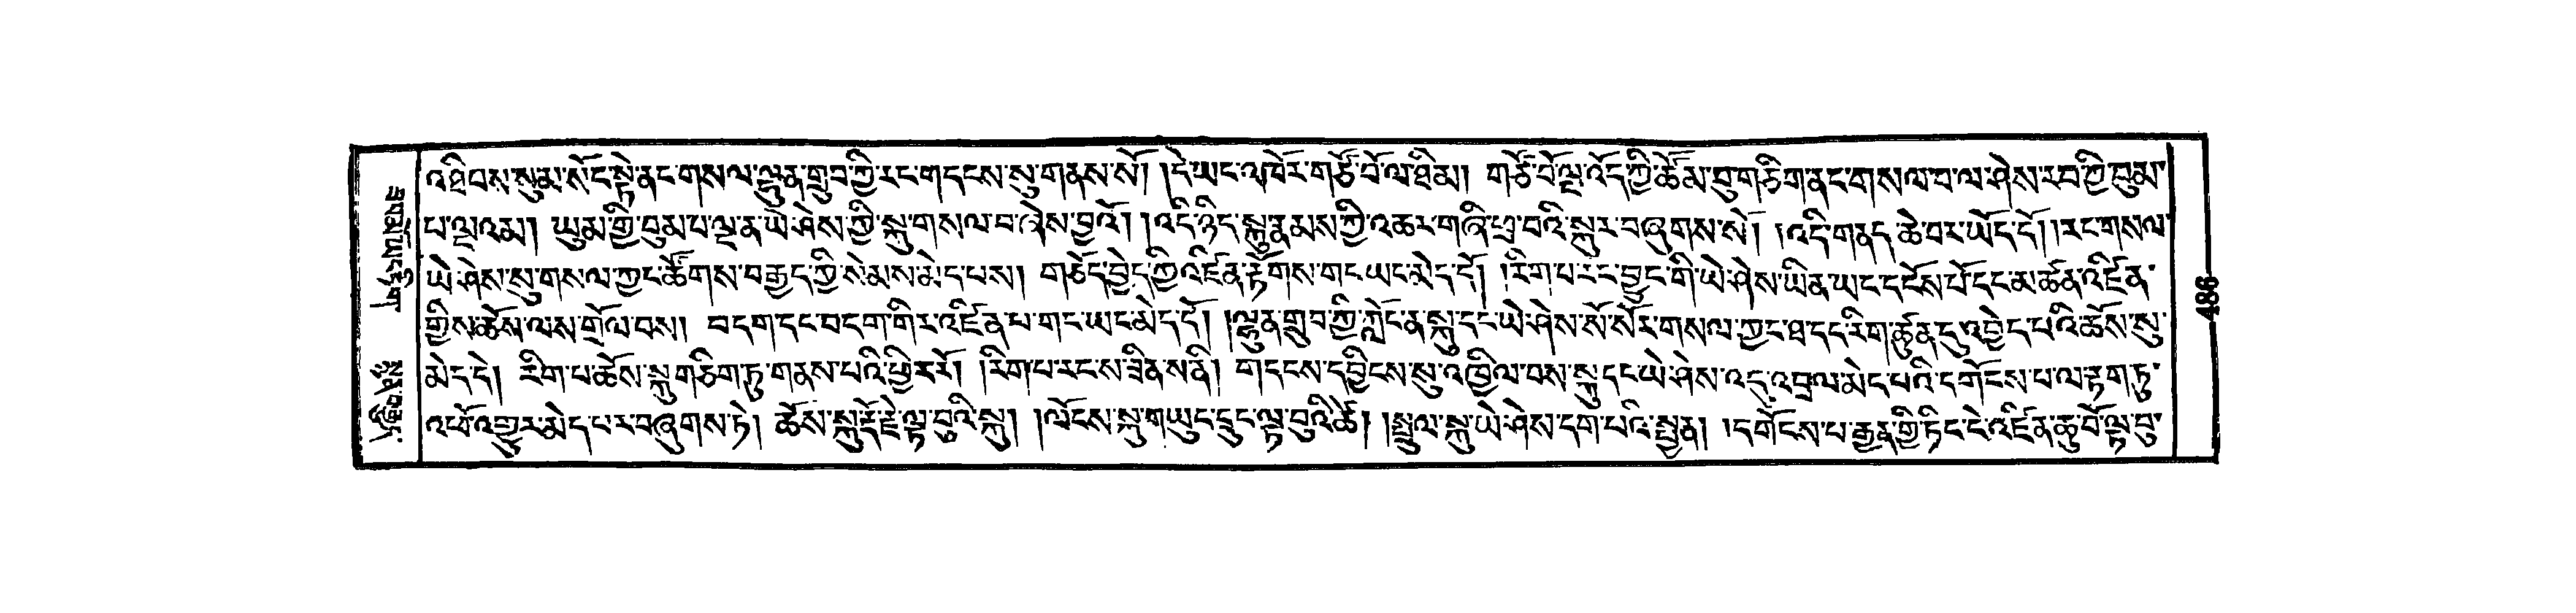 འཐིབས་སུམ་སོང་སྟེ་ནང་གསལ་ལྷུན་གྲུབ་ཀྱི་རང་གདངས་སུ་གནས་སོ། །དེ་ཡང་འཁོར་གཙོ་བོ་ལ་ཐིམ། གཙོ་བོ་ལྔ་འོད་ཀྱི་ཚོམ་བུ་གཅིག་ནང་གསལ་བ་ལ་ཤེས་རབ་ཀྱི་བུམ་
པ་ལྔའམ། ཡུམ་གྱི་བུམ་པ་ལྔ་ན་ཡེ་ཤེས་ཀྱི་སྐུ་གསལ་བ་ཞེས་བྱའོ། །འདི་ཉིད་སྐུ་རྣམས་ཀྱི་འཆར་གཞི་ཕྲ་བའི་སྐུར་བཞུགས་སོ། །འདི་གནད་ཆེ་བར་ཡོད་དོ། །རང་གསལ་
ཡེ་ཤེས་སུ་གསལ་ཀྱང་ཚོགས་བརྒྱད་ཀྱི་སེམས་མེད་པས། གཅོད་བྱེད་ཀྱི་འཛིན་རྟོགས་གང་ཡང་མེད་དོ། །རིག་པ་རང་བྱུང་གི་ཡེ་ཤེས་ཡིན་ཡང་དངོས་པོ་དང་མཚན་འཛིན་
གྱིས་ཚོས་ལས་གྲོལ་བས། བདག་དང་བདག་གིར་འཛིན་པ་གང་ཡང་མེད་དོ། །ལྷུན་གྲུབ་ཀྱི་ཀློང་ན་སྐུ་དང་ཡེ་ཤེས་སོ་སོར་གསལ་ཀྱང་ཐ་དད་རིག་ཚུན་དུ་འབྱེད་པའི་ཆོས་སུ་
མེད་དེ། རིག་པ་ཆོས་སྐུ་གཅིག་ཏུ་གནས་པའི་ཕྱིར་རོ། །རིག་པ་རངས་ཟིན་ས་ནི། གདངས་དབྱིངས་སུ་འཁྱིལ་བས་སྐུ་དང་ཡེ་ཤེས་འདུ་འབྲལ་མེད་པའི་དགོངས་པ་ལ་རྟག་ཏུ་
འཕོ་འགྱུར་མེད་པར་བཞུགས་ཏེ། ཆོས་སྐུ་རྡོ་རྗེ་ལྟ་བུའི་སྐུ། །ལོངས་སྐུ་གཡུང་དྲུང་ལྟ་བུའི་ཚེ། །སྤྲུལ་སྐུ་ཡེ་ཤེས་དག་པའི་སྤྱན། །དགོངས་པ་རྒྱན་གྱི་ཏིང་ངེ་འཛིན་ཆུ་བོ་ལྟ་བུ་